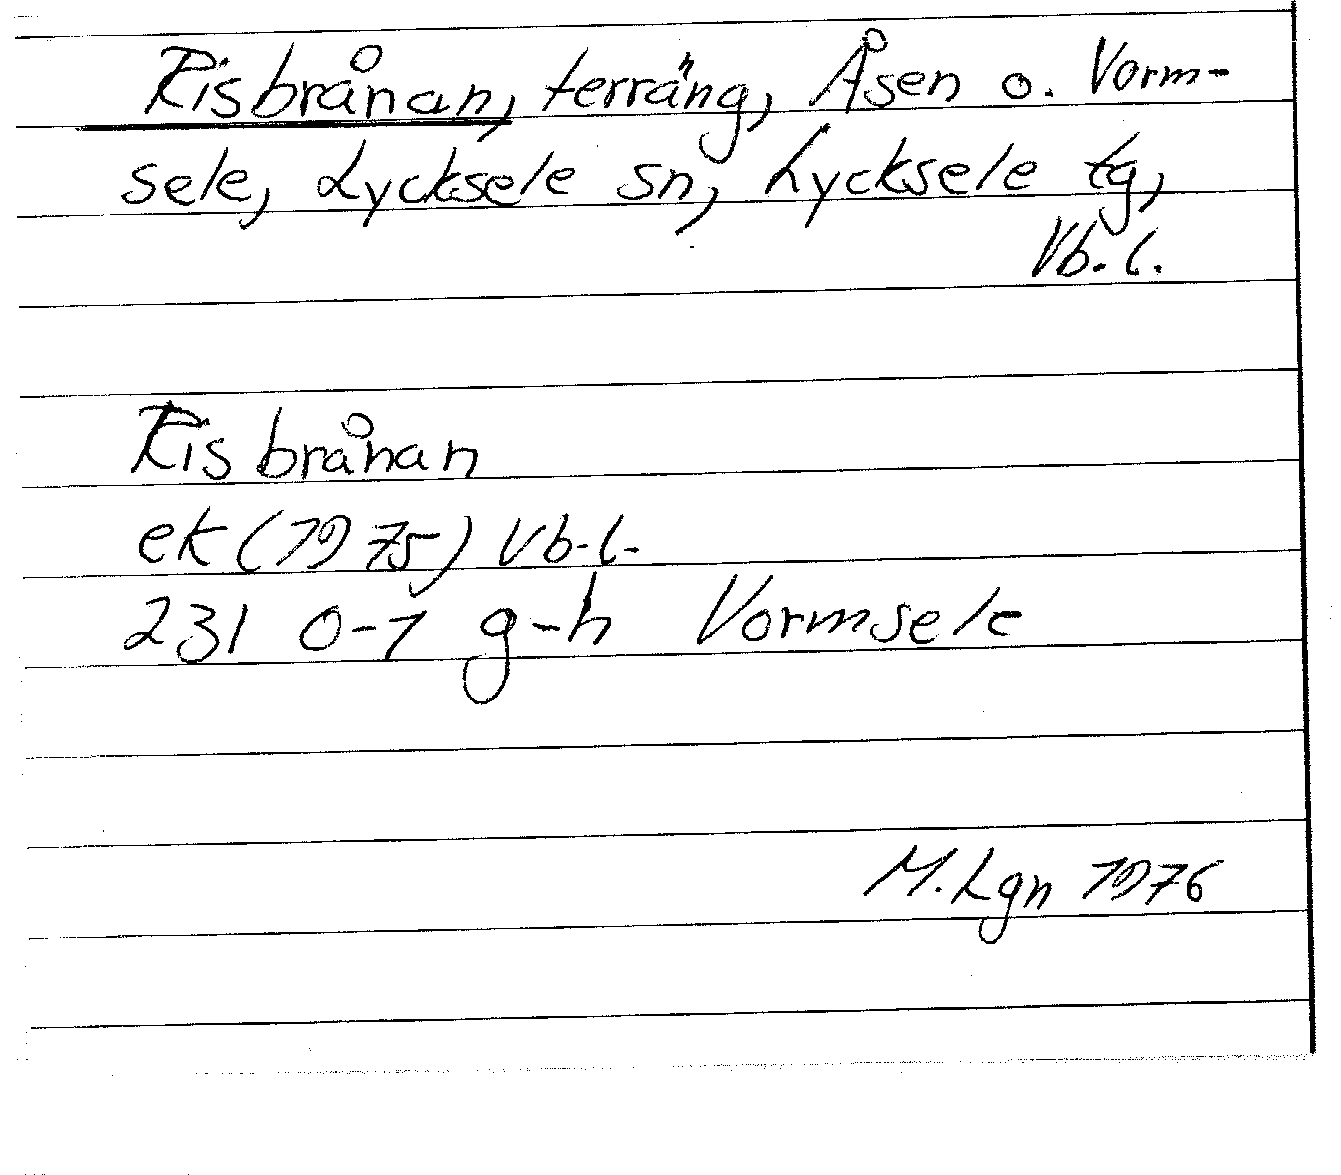 Risbrånan, terräng, Åsen o. Vorm-
sele, Lycksele sn, Lycksele tg,
Vb.l.
Risbrånan
ek (1975) Vb.l.
231 0-1 g-h Vormsele
M.Lgn 1976